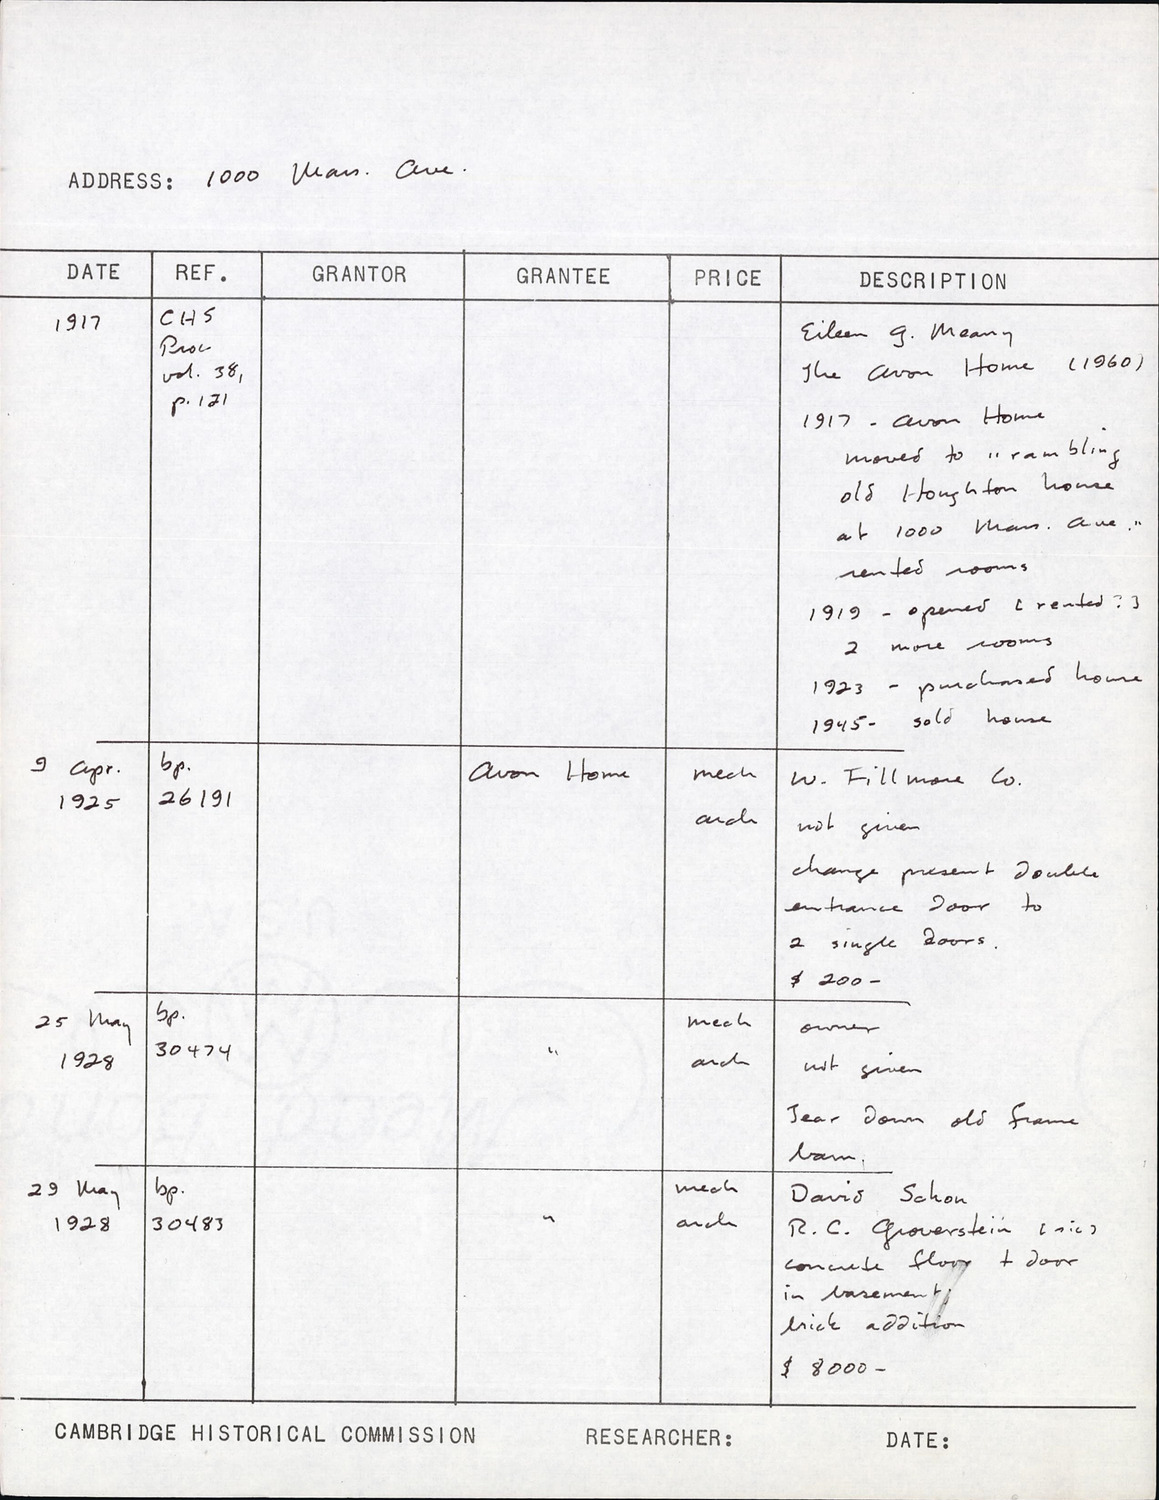 ADDRESS: 1000 Mass. Ave.
DATE REF. GRANTOR GRANTEE PRICE DESCRIPTION
1917 CHS
Proc
vol. 38,
p. 121
Eileen G. Meany
The Avon Home (1960)
1917 - Avon Home
moved to "rambling
old Houghton house
at 1000 Mass. Ave."
rented rooms
1919 - opened [rented?]
2 more rooms
1923 - purchased house
1945- sold house
9 Apr. bp. Avon Home mech W. Fillmore Co.
1925 26191 arch not given
change present double
entrance door to
2 single doors.
$ 200-
25 May bp. mech owner
1928 30474 " arch not given
Tear down old frame
barn.
29 May bp. mech David Schon
1928 30483 " arch R. C. Groverstein [sic]
concrete floor + door
in basement;
brick addition
$ 8000-
CAMBRIDGE HISTORICAL COMMISSION RESEARCHER: DATE: